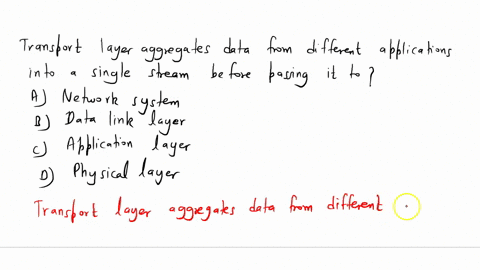 Transport layer aggregates data from different applications
into a single stream before passing it to?
A) Network system
B) Data link layer
C) Application layer
D) Physical layer
Transport layer aggregates data from different